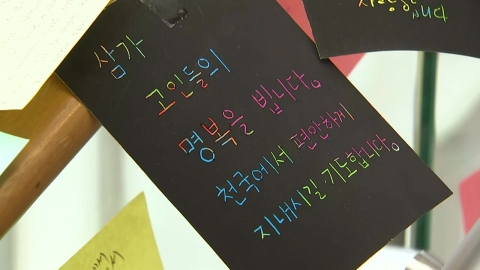 삼가
고인들의
명복을 빕니다.
천국에서 편안하게
지내시길 기도합니다.